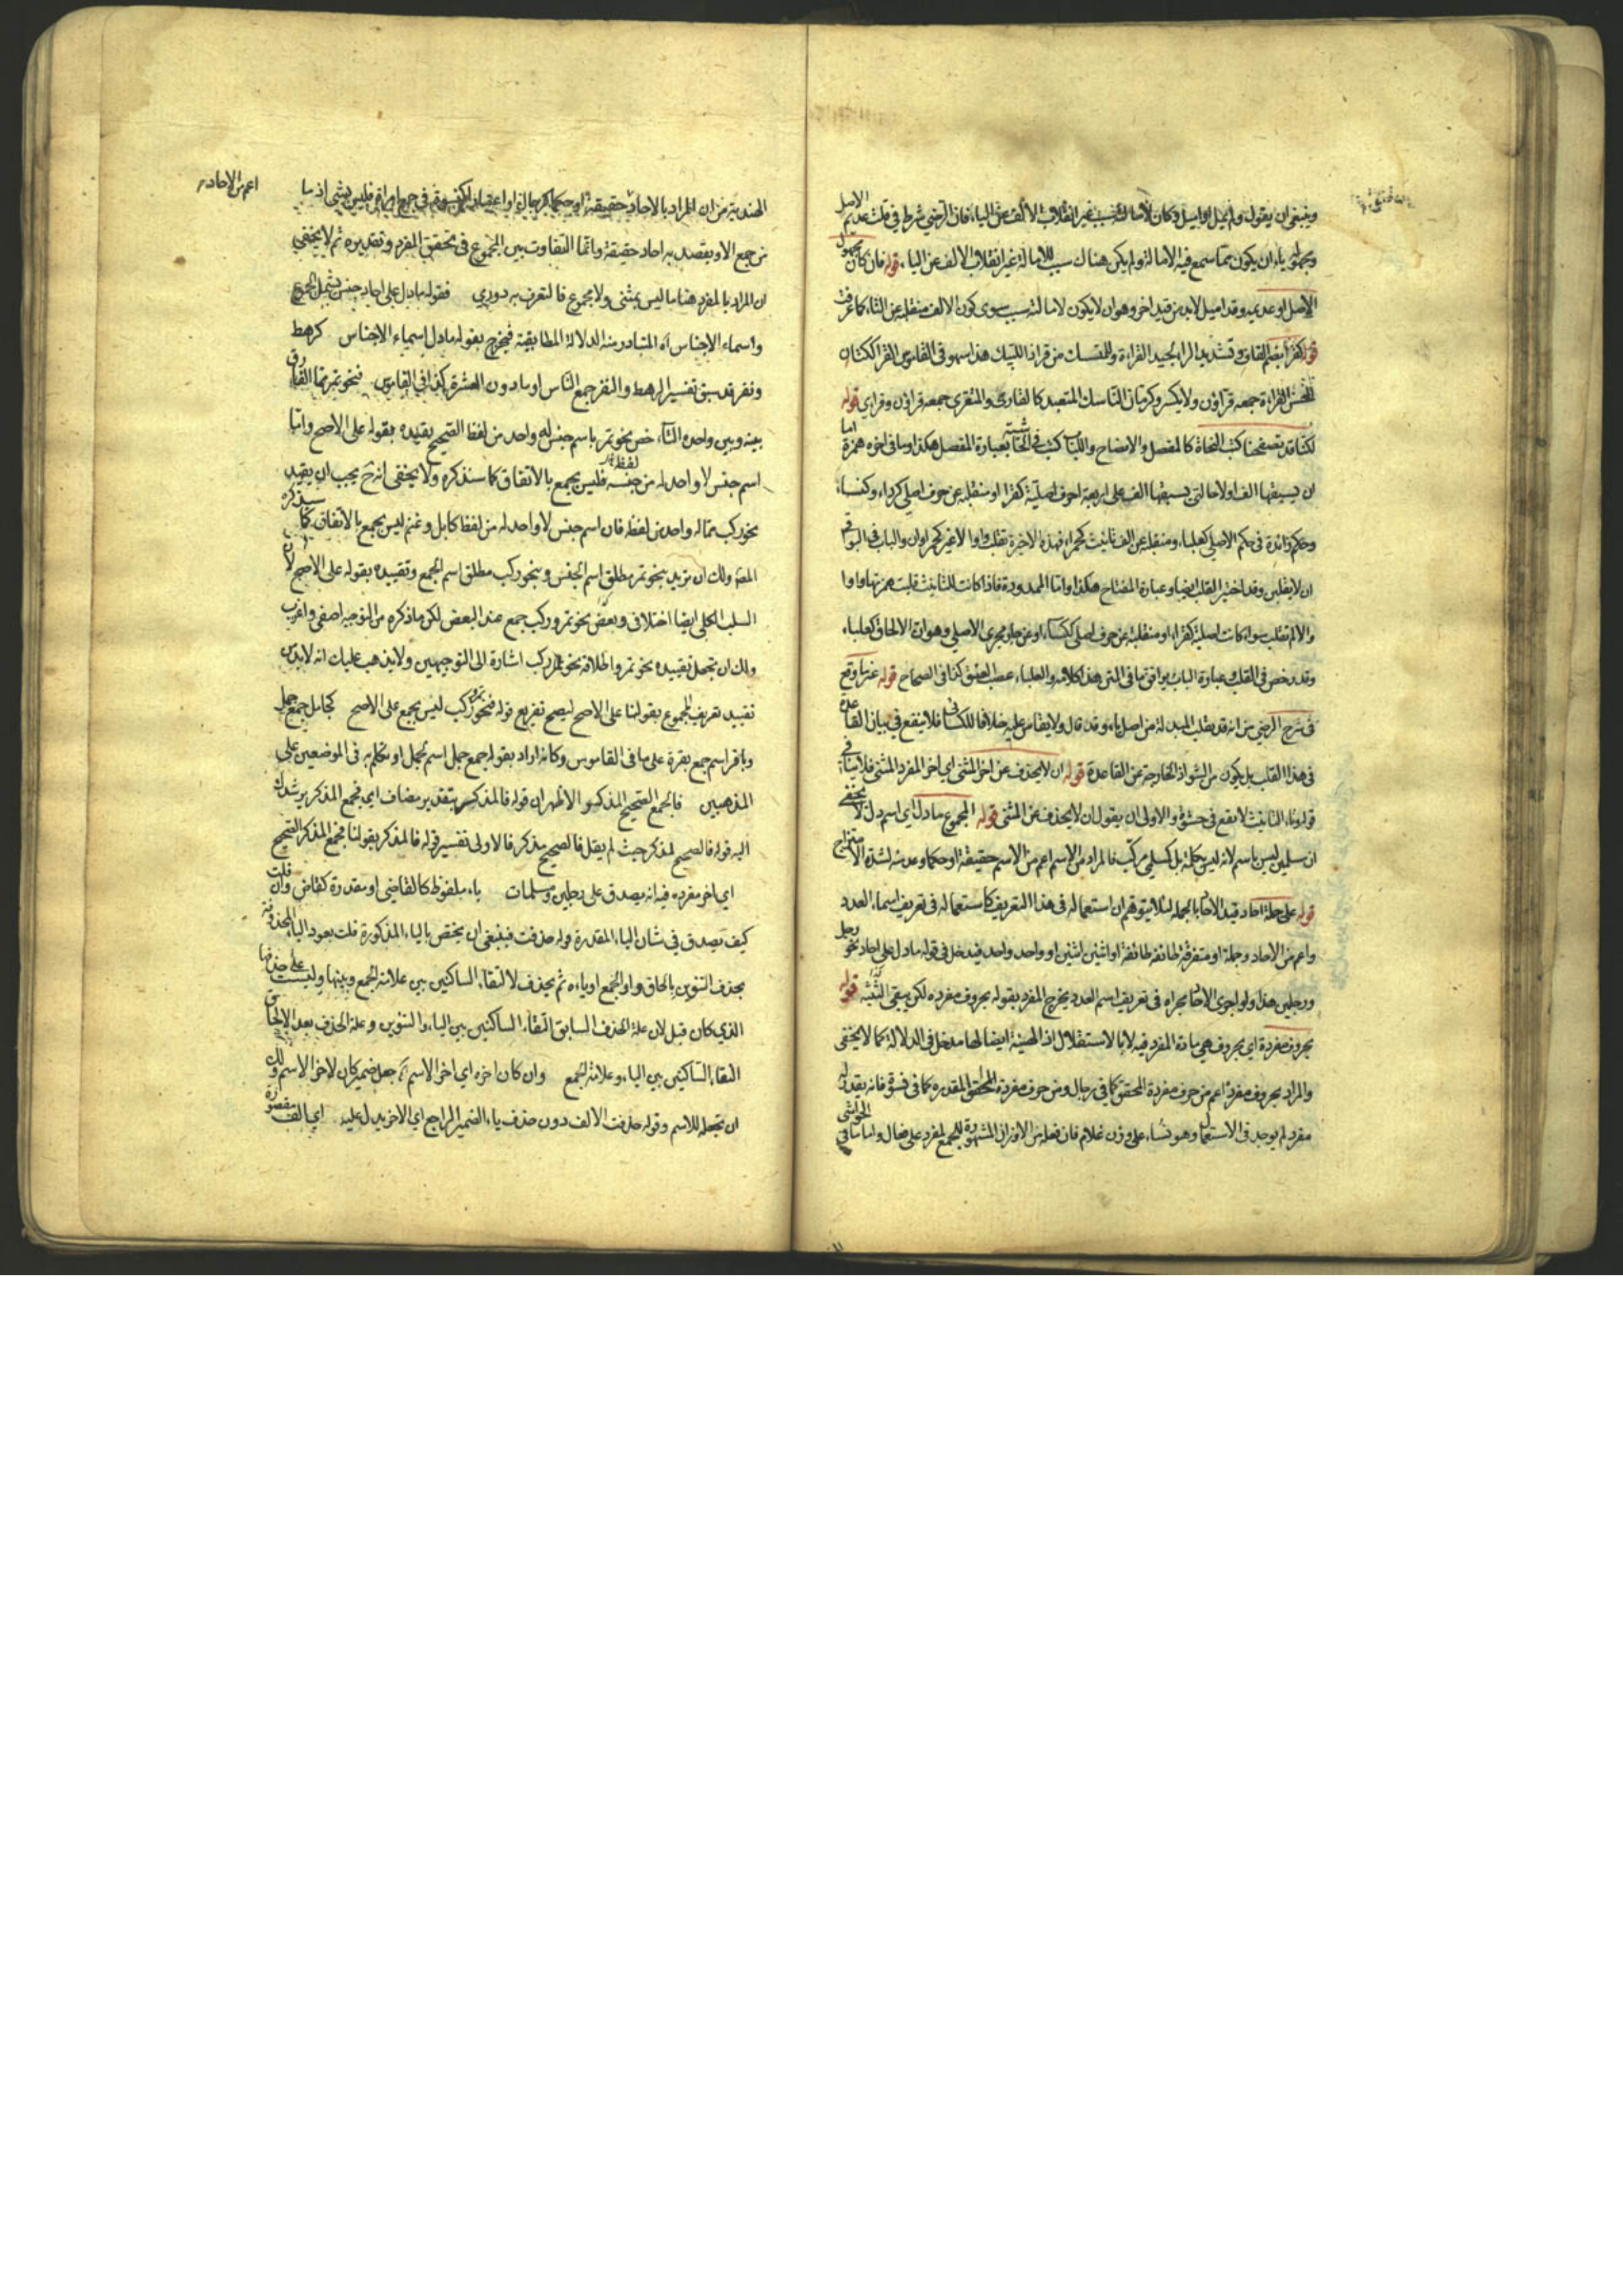 وينبغي ان يقول ولم يميل او اميل وكان لامالته سبب غير انقلاب الالف عن الياء فان الرضي شرط في قلب عديم الاصل
ومجهوله ياء ان يكون مما سمع فيه الامالة ولم يكن هناك سبب للامالة غير انقلاب الالف عن الياء قوله فان كان مجهول
الاصل او عديمه وقد اميل لابد من قيد اخر وهو ان لا يكون لامالته سبب سوى كون الالف منقلبة عن الياء كما عرفت
قوله كقراء بضم القاف وتشديد الراء لجيد القراءة وللمتنسك من قراء اذا تنسك هذا سهو في القاموس القراء ككتان
الحسن القراءة جمعه قراؤن ولا يكسر وكرمان الناسك المتعبد كالقارئ والمتقري جمعه قراؤن وقراري قوله
لكنا قد تصفحنا كتب النحاة كالمفصل والايضاح واللباب كتب في الحاشية عبارة المفصل هكذا وما في اخره همزة اما
ان يسبقها الف اولا فالتي يسبقها الف على اربعة احرف اصلية كقراء او منقلبة عن حرف اصلي كرداء وكساء
وحكم زائدة في حكم الاصلي كعلباء ومنقلبة عن الف تانيث كحمراء فهذه الاخيرة تقلب واوا لا غير كحمراوان والباب في البواقي
ان لا يقلبن وقد اجيز القلب ايضا وعبارة المفتاح هكذا واما الممدودة فاذا كانت للتانيث قلبت همزتها واوا
والا لم تقلب سواء كانت اصلية كقراء او منقلبة عن حرف اصلي ككساء او عن جار مجرى الاصلي وهو ان الالحاق كعلباء
وقد رخص في القلب وعبارة اللباب يوافق ما في المتن هذا كلامه والعلباء عصب العنق كذا في الصحاح قوله عما وقع
في شرح الرضي من انه قد يقلب المبدلة من اصل ياء وقد قال ولا يقاس عليه خلافا للكسائي فلا ينفع في بيان القاعدة
في هذا القلب بل يكون من الشواذ الخارجة عن القاعدة قوله ان لا يحذف عن اخر المثنى اي اخر المفرد المثنى فلا ينافي
قوله وتاء التانيث لا يقع في حشوه والاولى ان يقول ان لا يحذف عن المثنى قوله المجموع ما دل اي اسم دل لا يخفى
ان مسلمين ليس باسم لانه ليس بكلمة بل كمسلمي مركب فالمراد من الاسم اعم من الاسم حقيقة او حكما وعد منه لشدة الامتزاج
قوله على جملة احاد قيد الاحاد بالجملة لئلا يتوهم ان استعماله في هذا التعريف كاستعماله في تعريف اسماء العدد
واعم من الاحاد وجملة او متفرقة طائفة طائفة او اثنين اثنين او واحد واحد فيدخل في قوله ما دل على احاد نحو رجل
ورجلين هذا ولو اجرى الاحاد مجراه في تعريف اسم العدد يخرج المفرد بقوله بحروف مفرده لكن يبقى التثنية قوله
بحروف مفردة اي بحروف هي مادة المفرد فيه لا بالاستقلال اذ الهيئة ايضا لها مدخل في الدلالة كما لا يخفى
والمراد بحروف مفرده اعم من حروف مفردة المحقق كما في رجال ومن حروف مفردة المحقق المقدره كما في نسوة فانه يقدر له
مفرد لم يوجد في الاستعمال وهو نساء على وزن غلام فان فعلة من الاوزان المشهورة للجمع لمفرد على فعال واما ما في الحواشي
الهندية من ان المراد بالاحاد حقيقة او حكما كرجال او اعتبارا كنسوة في جمع امراة فليس بشئ اذ ما
اعم من الاحاد
من جمع الا ويقصد به احاد حقيقة وانما التفاوت بين المجموع في تحقق المفرد وتقديره ثم لا يخفى
ان المراد بالمفرد هنا ما ليس بمثنى ولا مجموع فالتعريف به دوري فقوله ما دل على احاد جنس يشمل المجموع
واسماء الاجناس اه المتبادر منه الدلالة المطابقية فيخرج بقوله ما دل اسماء الاجناس كرهط
ونفر قد سبق تفسير الرهط والنفر جمع الناس او ما دون العشرة كذا في القاموس فنحو تمر مما الفارق
بينه وبين واحده التاء خص نحو تمر باسم جنس له واحد من لفظه الصحيح تقييده بقوله على الاصح واما
اسم جنس لا واحد له من جنسه فليس بجمع بالاتفاق كما سنذكره ولا يخفى انه ح يجب ان يقيد
لفظه
نحو ركب بما له واحد من لفظه فان اسم جنس لا واحد له من لفظه كابل وغنم ليس بجمع بالاتفاق كما سيذكره
المص ولك ان تريد بنحو تمر مطلق اسم الجنس وبنحو ركب مطلق اسم الجمع وتقييده بقوله على الاصح لان
السلب الكلي ايضا اختلافي وبعض نحو تمر وركب جمع عند البعض لكن ما ذكره من التوجيه اصفى واعذب
ولك ان تجعل تقييده نحو تمر واطلاقه نحو ركب اشارة الى التوجيهين ولا يذهب عليك انه لابد من
تقييد تعريف المجموع بقولنا على الاصح ليصح تفريع قوله فنحو تمر وركب ليس بجمع على الاصح كجامل جمع جمل
وباقر اسم جمع بقرة على ما في القاموس وكانه اراد بقوله جمع جمل اسم لجمل او تكلم به في الموضعين على
المذهبين فالجمع الصحيح المذكر والاظهر ان قوله فالمذكر بتقدير مضاف اي فجمع المذكر يرشدك
اليه قوله فالصحيح لمذكر حيث لم يقل فالصحيح مذكر فالاولى تفسير قوله فالمذكر بقولنا فجمع المذكر الصحيح
اي اخر مفرده فيه انه يصدق على رجلين ومسلمات ياء ملفوظة كالقاضي او مقدرة كقاض وان قلت
كيف يصدق في شان الياء المقدرة قوله حذفت فينبغي ان يختص بالياء المذكورة قلت يعود الياء المحذوفة
بحذف التنوين بالحاق واو الجمع او يائه ثم يحذف لالتقاء الساكنين بين علامة الجمع وبينها وليست على حذفها
الذي كان قبل لان علة الحذف السابق التقاء الساكنين بين الياء والتنوين وعلة الحذف بعد الالحاق
التقاء الساكنين بين الياء وعلامة الجمع وان كان اخره اي اخر الاسم جعل ضمير كان لاخر الاسم ولك
ان تجعله للاسم وقوله حذفت الالف دون حذف ياء الضمير الراجع اي الاخر يدل عليه اي الف مقصورة